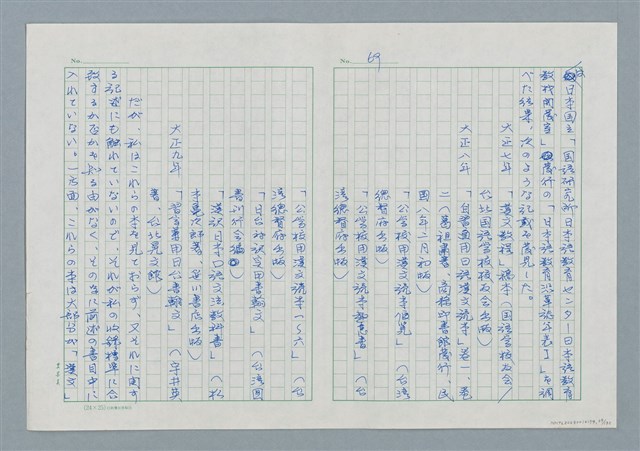 No. 69
は日本国立「国語研究所日本語教育センター日本語教育
教材開発室」発行の「日本語教育沿革誌年表Ⅰ」を調
べた結果、次のような記載を発見した。
大正七年　「漢文教程」稿本（国語学校校友会／
台北国語学校校友会出版）
大正八年　「自習適用日語漢文読本」巻一、巻
二（葛祖蘭書　商務印書館発行、民
国八年二月初版）
「公学校用漢文読本 」（台湾総
督府出版）
「公学校用漢文読本 書」（台
湾総督府出版）
No.
「公学校用漢文読本一〜六」（台
湾総督府出版）
「日台対訳実用書翰文」（台湾国
書刊行会編）
「漢訳日本口語文法教科書」（松
本亀次郎著、笹川書店出版）
大正九年　「習字兼用日台書翰文」（宇井英
著、台北晃文館）
だが、私はこれらの本を見ておらず、又それに関す
る記述にも触れていないので、それが私の収録標準に合
致するか否かを知る由がなく、そのために前述の書目中に
入れていない。一方面、これらの本は大部分が「漢文」
(24×25)